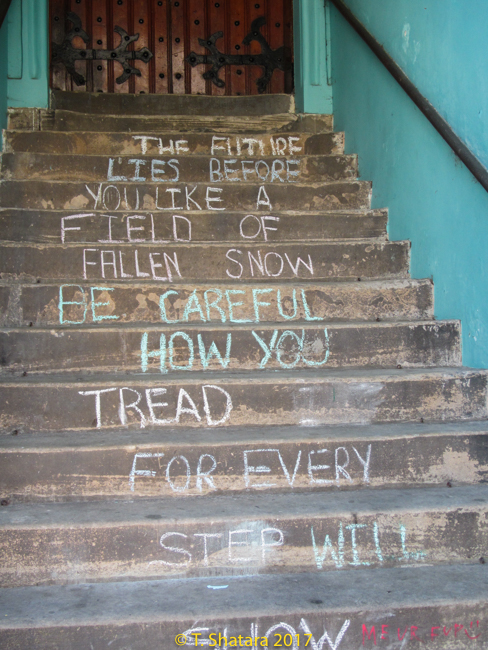 THE FUTURE
LIES BEFORE
YOU LIKE A
FIELD OF
FALLEN SNOW
BE CAREFUL
HOW YOU
TREAD
FOR EVERY
STEP WILL
SHOW
© T. Shatara 2017